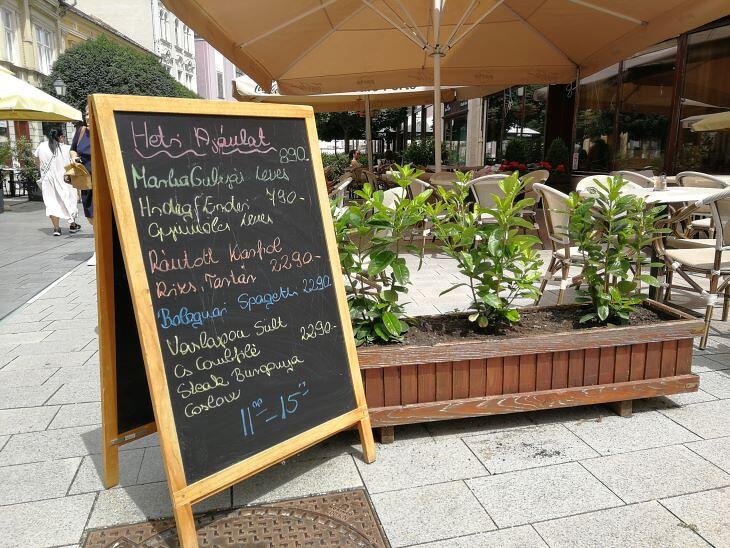 Heti Ajánlat
MarhaGulyás Leves 890.
Hideg/Epden 790-
Gyümölcs Leves
Rántott Karfiol
Rizs, Tartár 2290,-
Bolognai Spagetti 2290
Vaslapon Sült
Cs Comlfilé 2290-
Steak Burgonya
Coslow
11 00 - 15 00